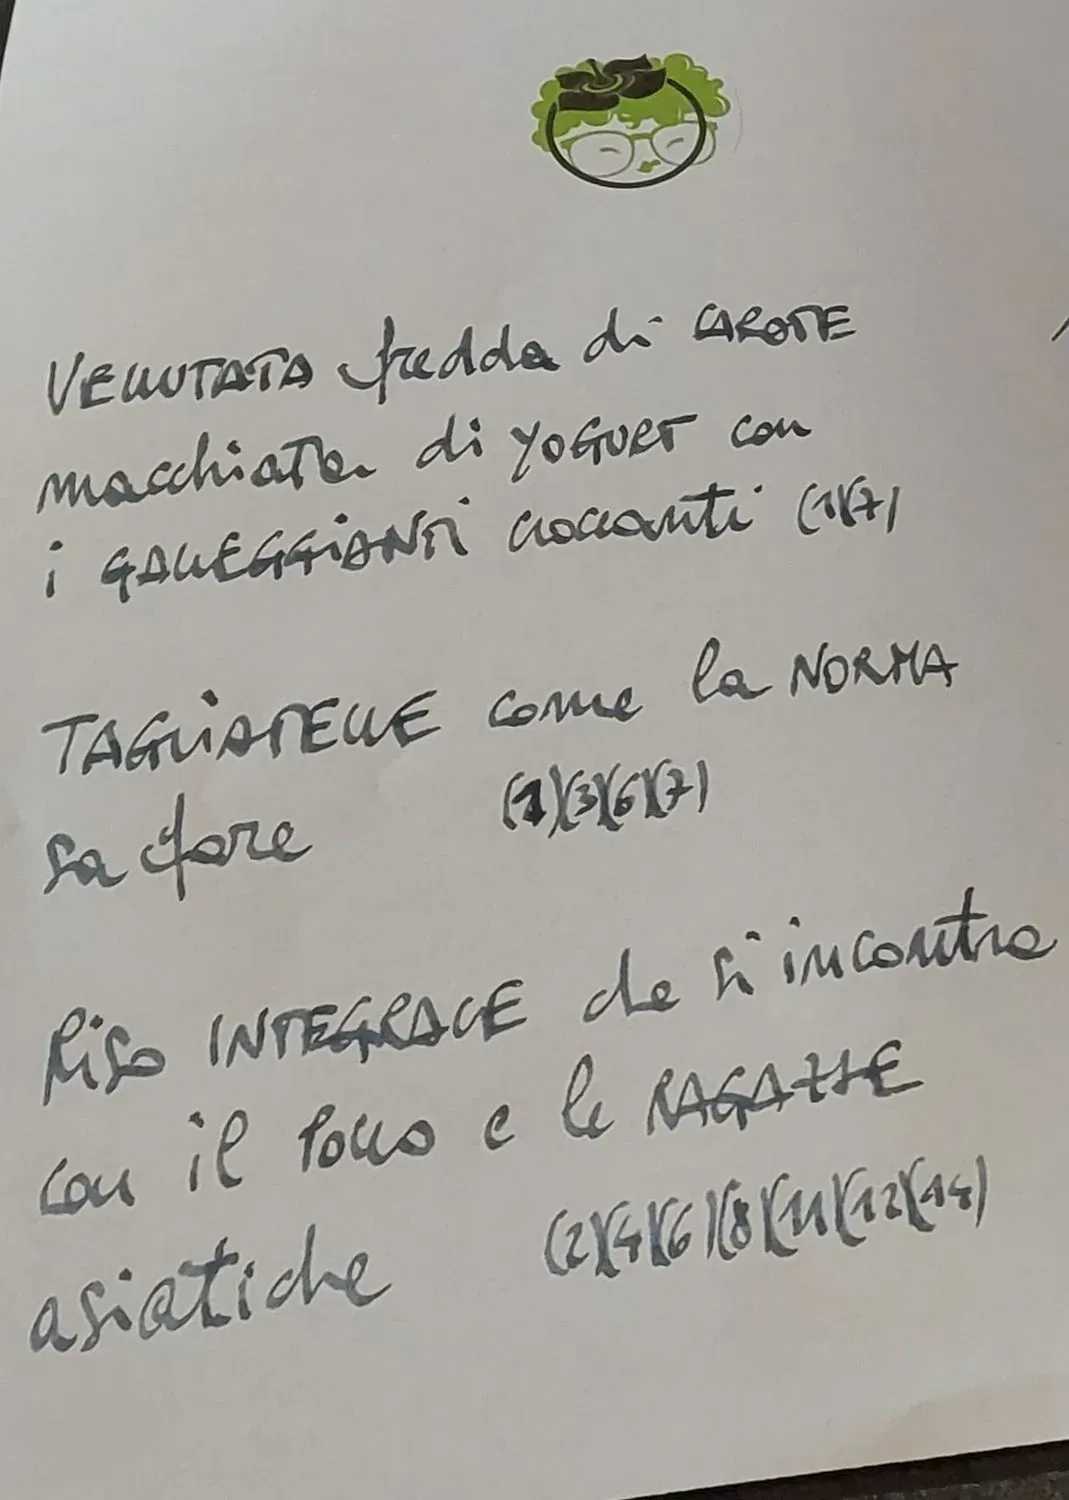 VELLUTATA fredda di CAROTE
macchiata di YOGURT con
i GALLEGGIANTI croccanti (1)(7)
TAGLIATELLE come la NORMA
sa fare (1)(3)(6)(7)
Riso INTEGRALE che si incontra
con il Pollo e le RAGAZZE
asiatiche (2)(4)(6)(8)(11)(12)(14)